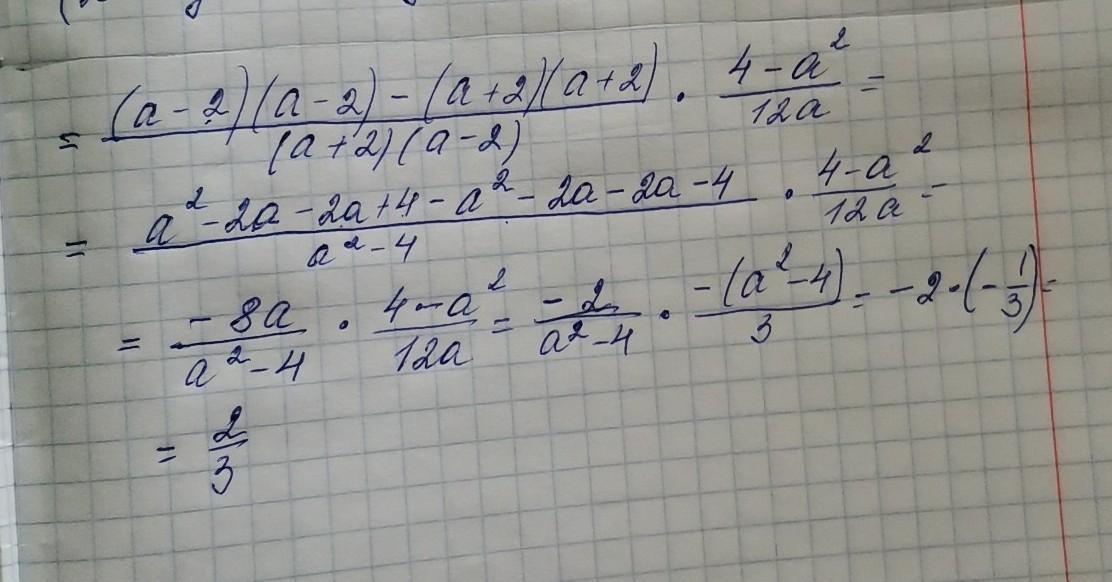 = ((a - 2)(a - 2) - (a + 2)(a + 2))/((a + 2)(a - 2)) · (4 - a²)/(12a) =
= (a² - 2a - 2a + 4 - a² - 2a - 2a - 4)/(a² - 4) · (4 - a²)/(12a) =
= (- 8a)/(a² - 4) · (4 - a²)/(12a) = (- 2)/(a² - 4) · (-(a² - 4))/3 = - 2 · (- 1/3) =
= 2/3